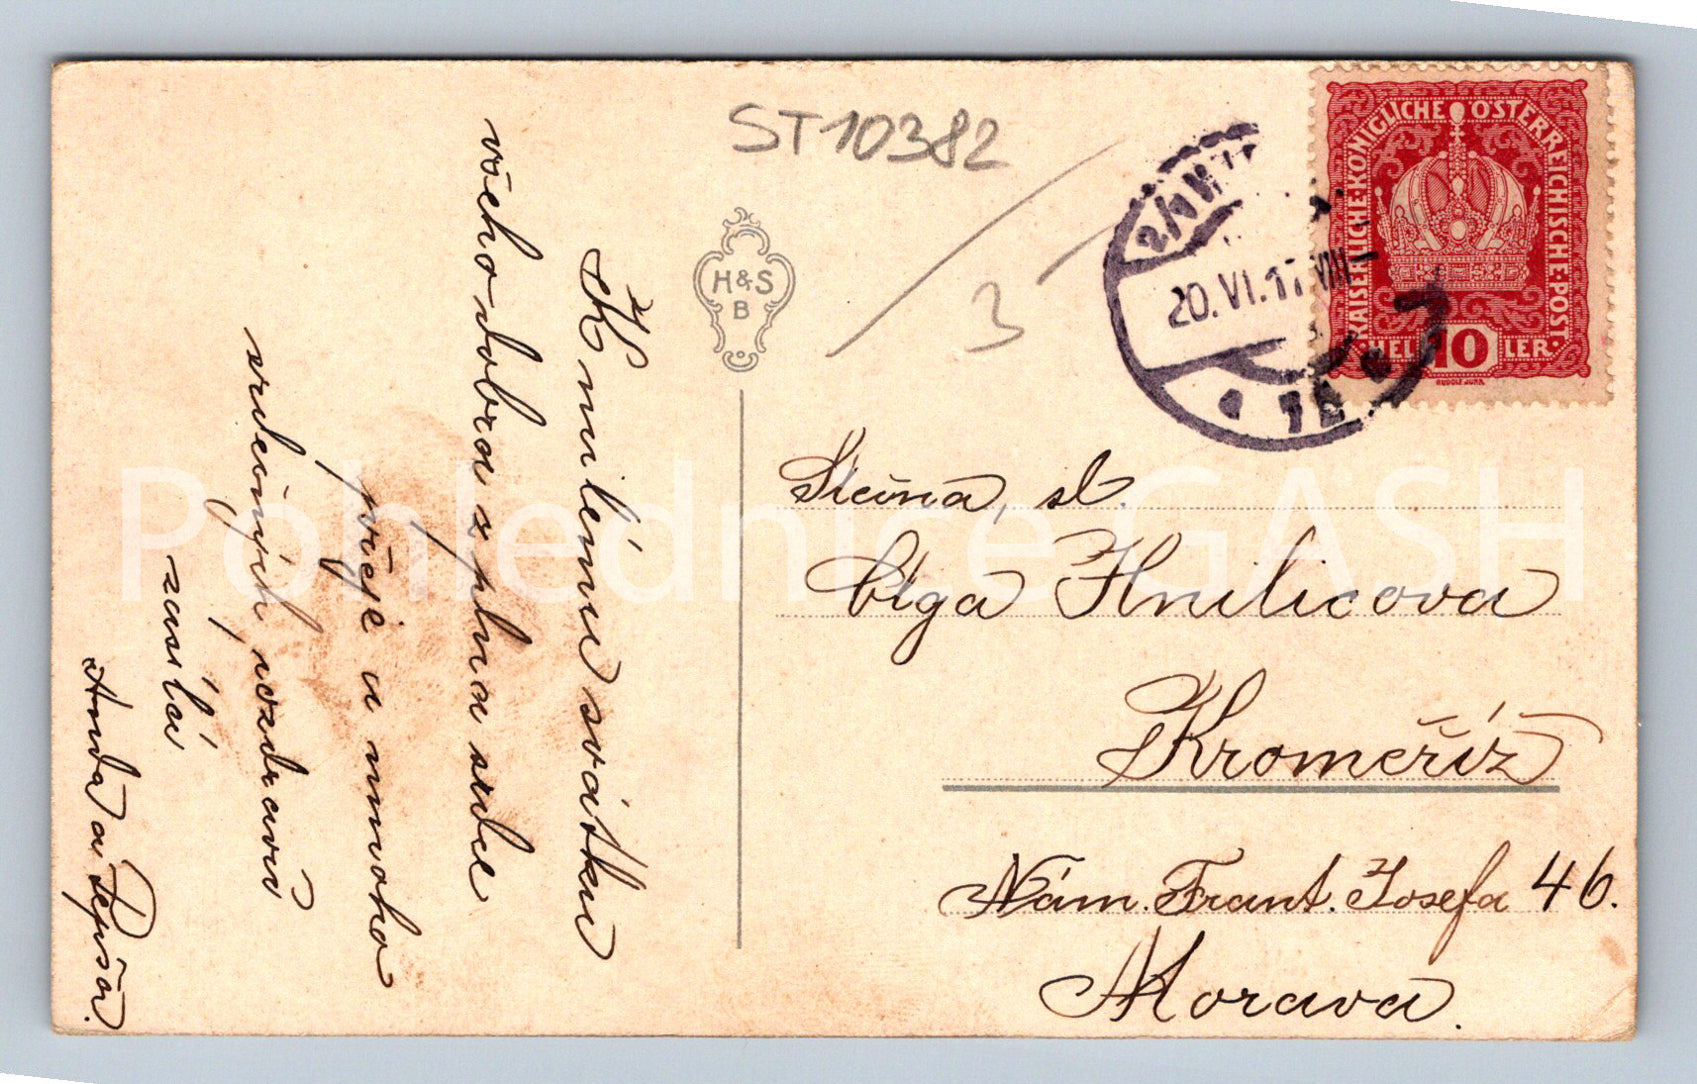 ST10382
3
H&S
B
KAISERLICHE·KÖNIGLICHE ÖSTERREICHISCHE·POST·
HELLER
10
RUDOLF JUNK
20. VI. 17 VIII
1A
K milému svátku
všeho dobra z plna srdce
přeje a mnoho
srdečných vzdravů
zasílá
Anda a Pepša.
Slečna, sl.
Olga Hnilicova
Kroměříž
Nám. Frant. Josefa 46.
Morava.
Pohlednice GASH